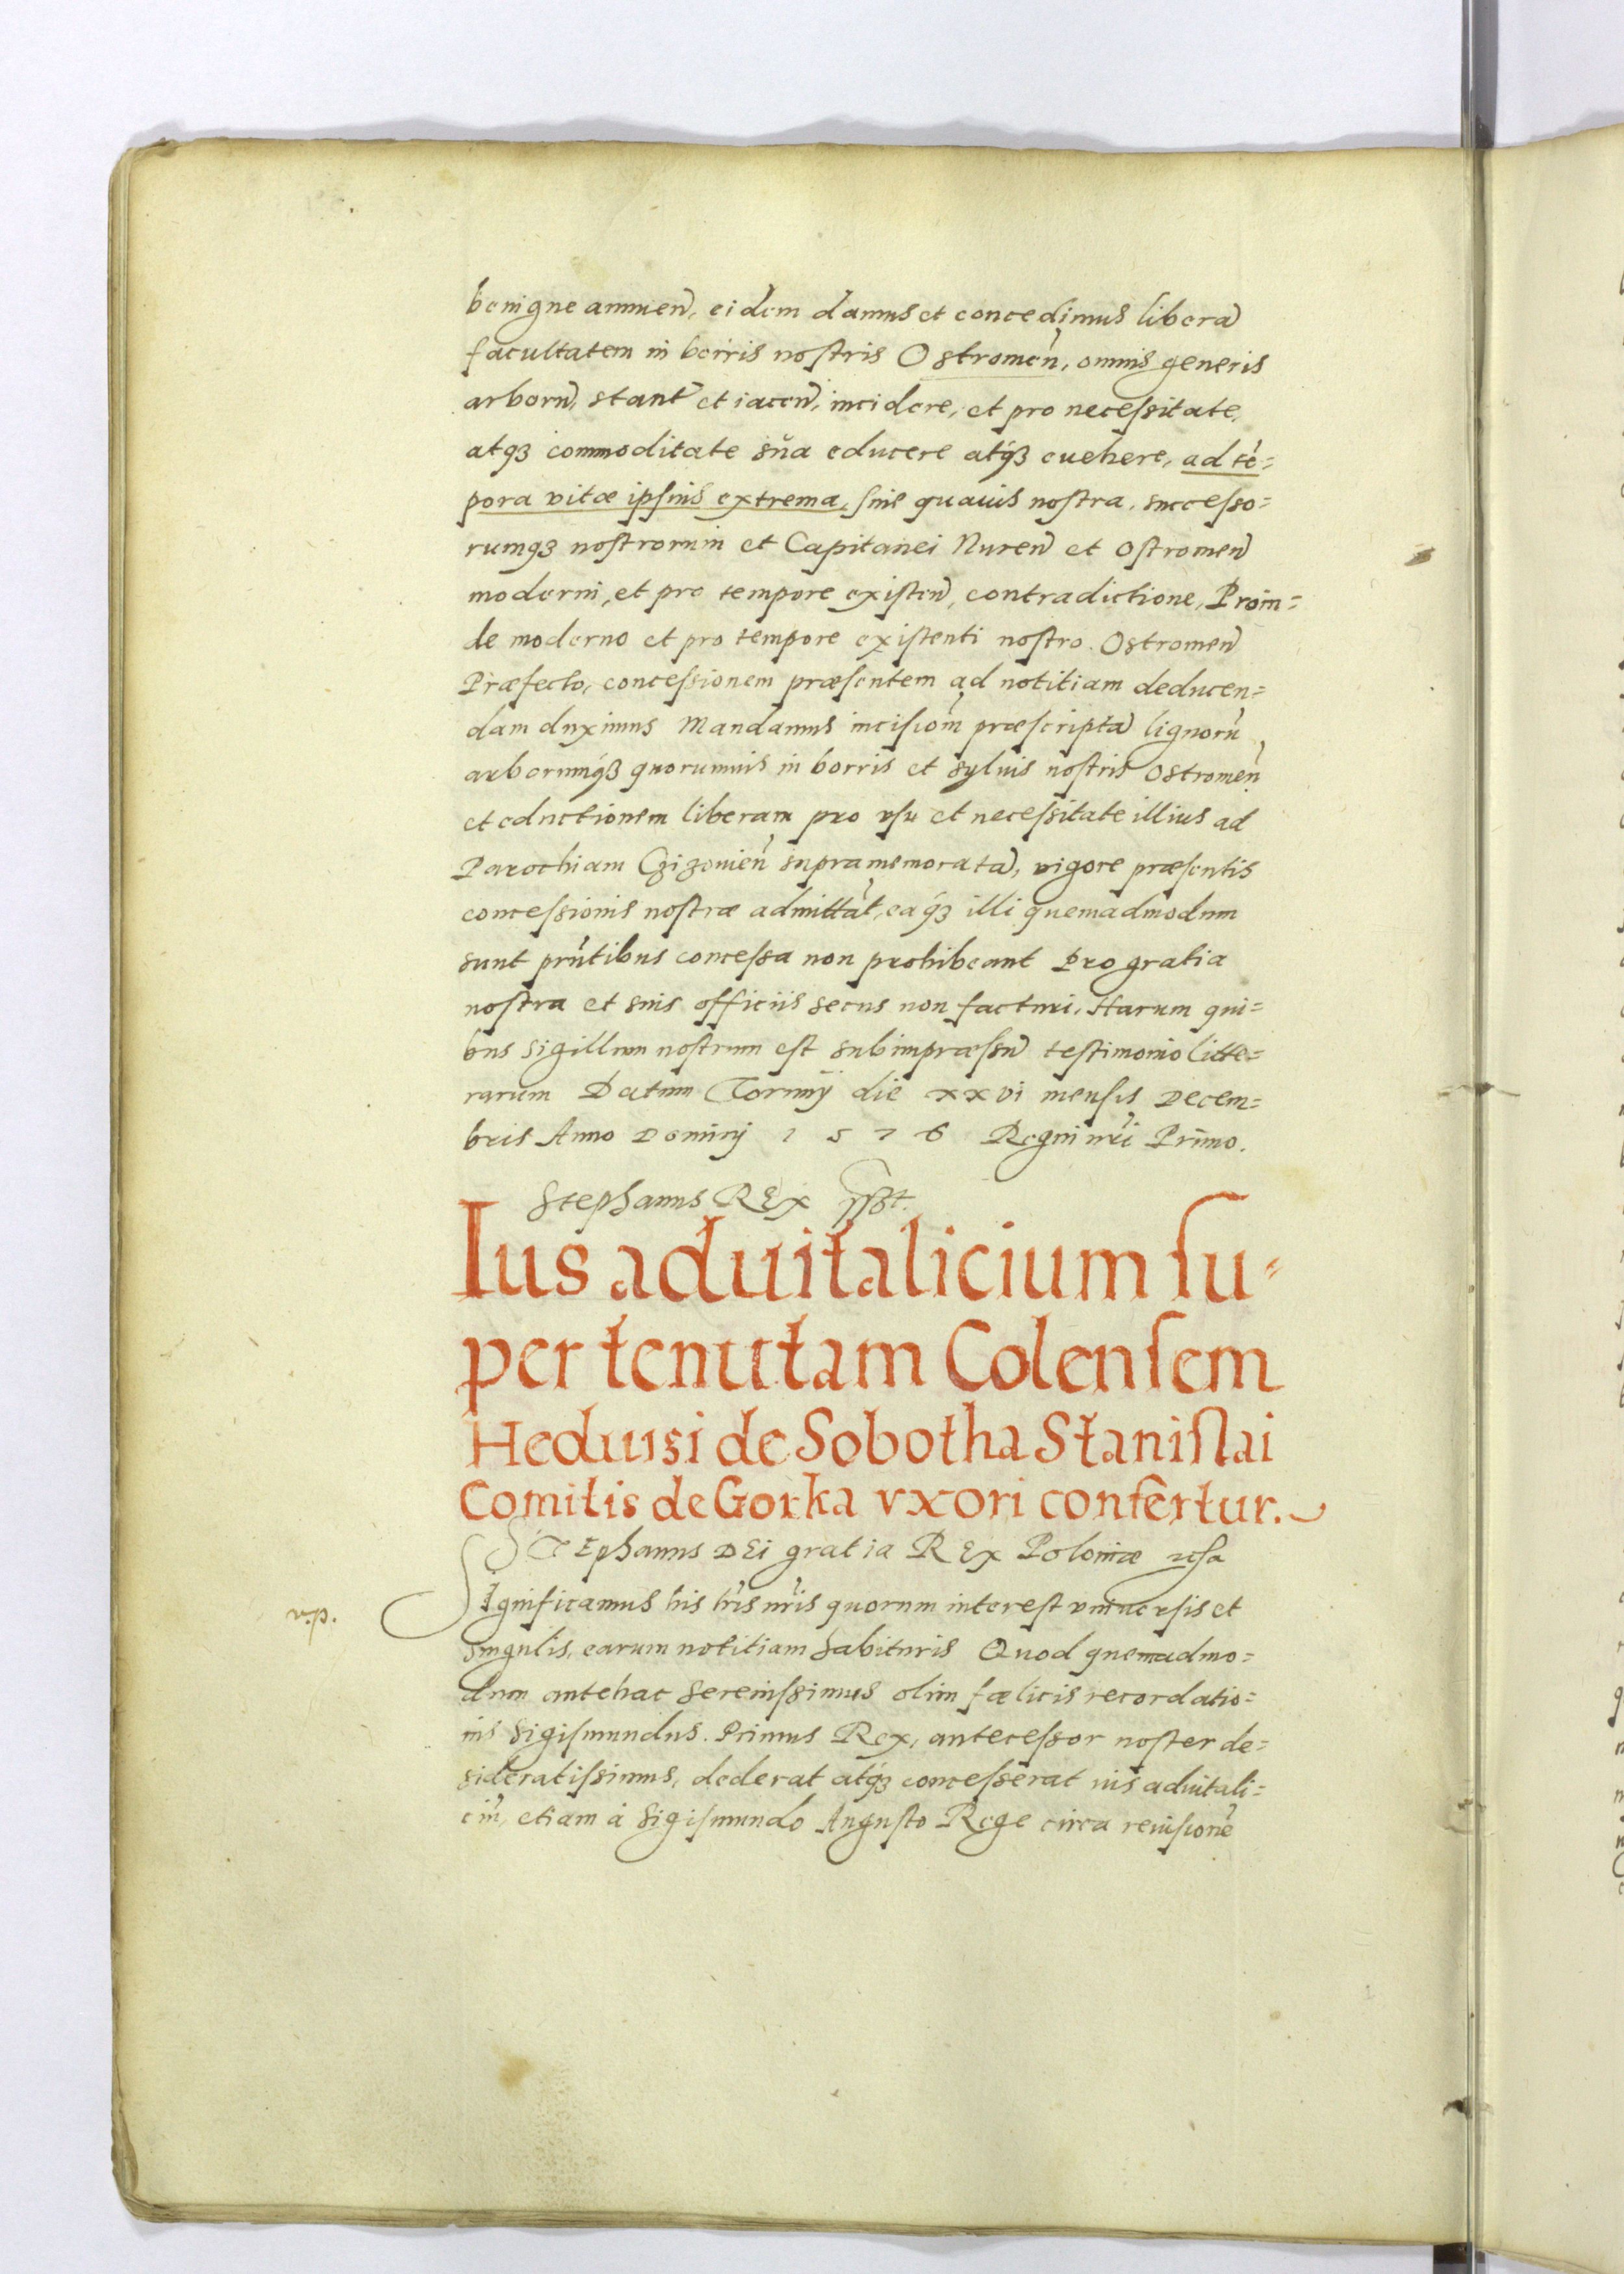 benigne annuen̄, eidem damus et concedimus liberā
facultatem in borris nostris Ostromen̄, omnis generis
arborū, stant̄ et iacen̄, incidere, et pro necessitate,
atqꝫ commoditate sūa educere atqꝫ euehere, ad tē=
pora vitæ ipsius extrema, siue quauis nostra, successo=
rumqꝫ nostrorum et Capitanei Nuren̄ et Ostromen̄
moderni, et pro tempore existen̄, contradictione, Proin=
de moderno et pro tempore existenti nostro Ostromen̄
Præfecto, concessionem præsentem ad notitiam deducen=
dam duximus Mandamus incisiom̄ præscriptā lignorū
arborumqꝫ quorumuis in borris et syluis nostris Ostromen̄
et eductionem liberam pro vsu et necessitate illius ad
Parochiam Czizouien̄ supramemoratā, vigore præsentis
concessionis nostræ admittāt, eaqꝫ illi quemadmodum
sunt prn̄tibus concessa non prohibeant Pro gratia
nostra et suis officiis secus non facturi, Harum qui=
bus sigillum nostrum est subimpræssū testimonio litte=
rarum Datum Torunij die xxvi mensis Decem=
bris Anno Dominj 1576 Regni nr̄i Primo.
Stephanus REx sszt.
Ius aduitalicium su=
per tenutam Colensem
Heduisi de Sobotha Stanislai
Comitis de Gorka vxori confertur.
STEphanus DEi gratia REx Poloniæ
Significamus his lr̄is nr̄is quorum interest vniuersis et
singulis, earum notitiam habituris Quod quemadmo=
dum antehac Serenissimus olim fœlicis recordatio=
nis Sigismundus Primus Rex, antecessor noster de=
sideratissimus, dederat atqꝫ concesserat ius aduitali=
ciū, etiam à Sigismundo Augusto Rege circa reuisionē